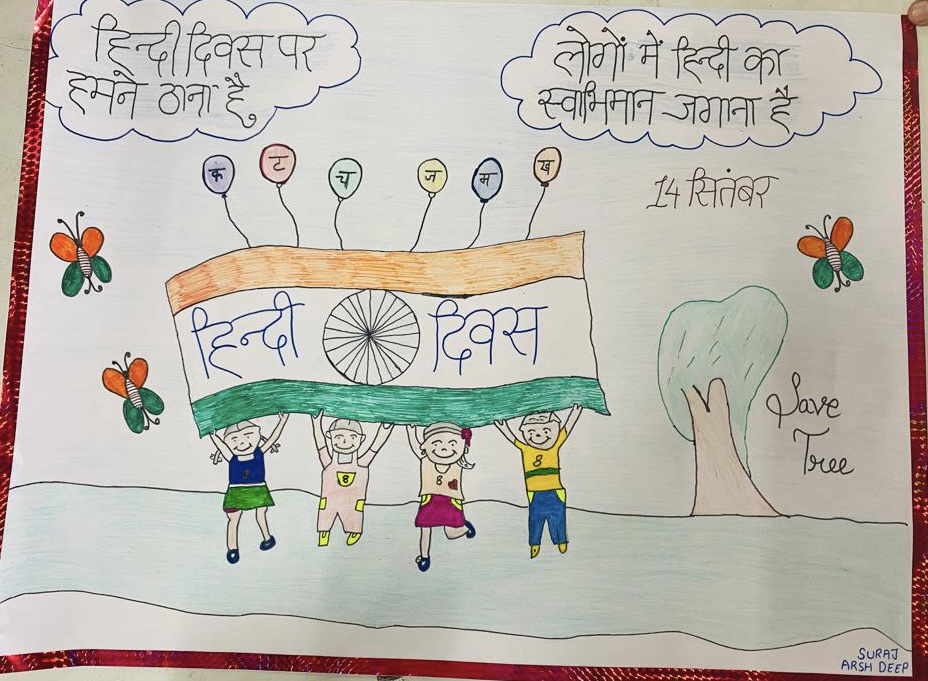 हिन्दी दिवस पर
हमने ठाना है,
लोगों में हिन्दी का
स्वाभिमान जगाना है
क
ट
च
ज
म
ख
14 सितंबर
हिन्दी दिवस
Save
Tree
8
8
8
SURAJ
ARSH DEEP